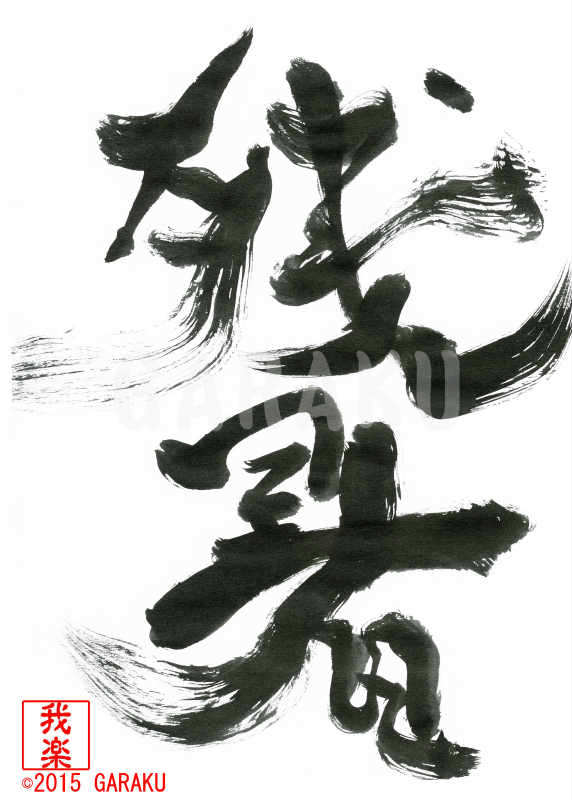 残暑
GARAKU
我楽
©2015 GARAKU